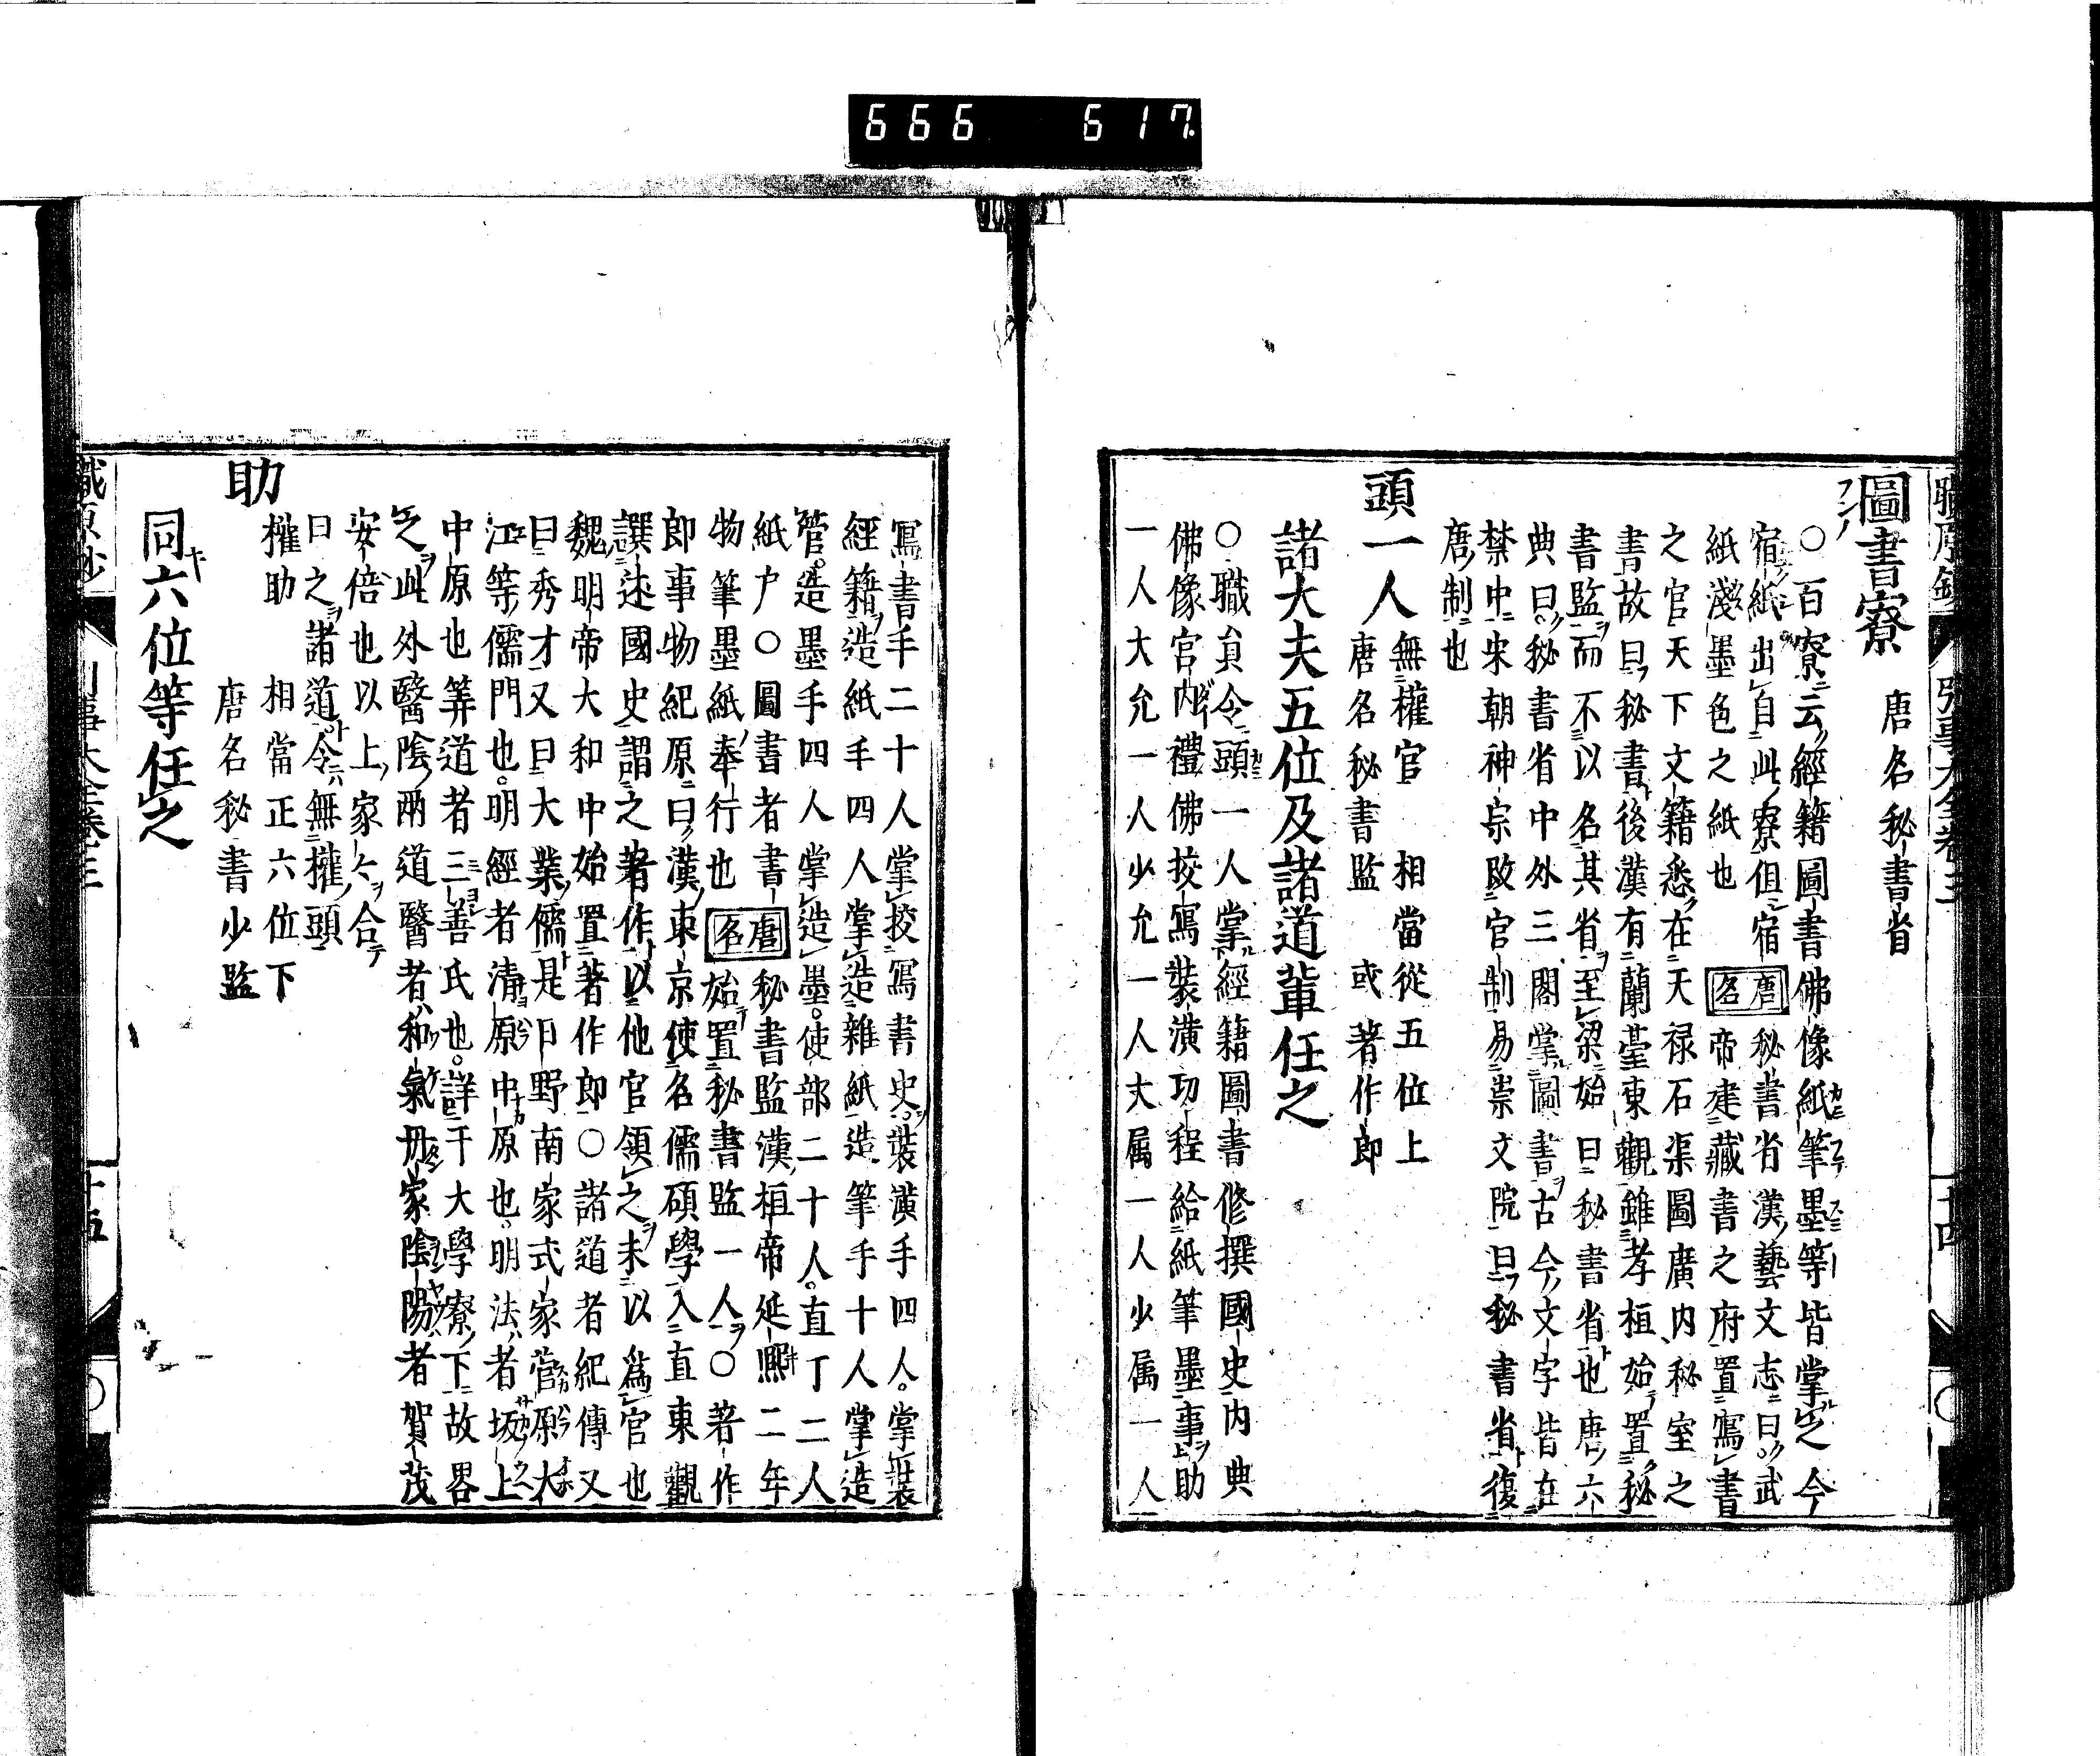 666 617
圖書寮 唐名秘書省
○百寮云經籍圖書佛像紙筆墨等皆掌之今
宿紙出自此寮但宿
紙淺墨色之紙也
唐名 秘書省漢藝文志曰武
帝建藏書之府置寫書
之官天下文籍悉在天禄石渠圖廣内秘室之
書故曰秘書後漢有蘭臺東觀雖孝桓始置秘
書監而不以名其省至梁始曰秘書省也唐六
典曰秘書省中外三閣掌圖書古今文字皆在
禁中宋朝神宗改官制易崇文院曰秘書省復
唐制也
頭一人 無權官 相當從五位上
唐名秘書監 或著作郎
諸大夫五位及諸道軰任之
○職負令頭一人掌經籍圖書修撰國史内典
佛像宮内禮佛挍寫裝潢功程給紙筆墨事助
一人大允一人少允一人大属一人少属一人
寫書手二十人掌挍寫書史裝潢手四人掌裝
經籍造紙手四人掌造雜紙造筆手十人掌造
管造墨手四人掌造墨使部二十人直丁二人
紙戸○圖書者書
物筆墨紙奉行也
唐名 秘書監漢桓帝延熙二年
始置秘書監一人○著作
郎事物紀原曰漢東京使名儒碩學入直東觀
譔述國史謂之著作以他官領之未以爲官也
魏明帝大和中始置著作郎○諸道者紀傳又
曰秀才又曰大業儒是日野南家式家菅原大
江等儒門也明經者清原中原也明法者坂上
中原也筭道者三善氏也詳于大學寮下故畧
之此外醫陰兩道醫者和氣丹家陰陽者賀茂
安倍也以上家々合
曰之諸道令無權頭
助 權助 相當正六位下
唐名秘書少監
同六位等任之
十五